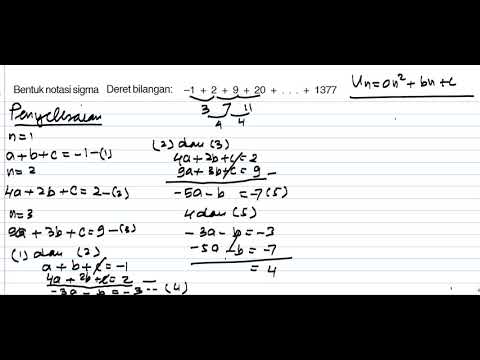 Bentuk notasi sigma Deret bilangan: -1 + 2 + 9 + 20 + . . . + 1377
Un = an² + bn + c
3 7 11
4 4
Penyelesaian
n = 1
a + b + c = -1 - (1)
n = 2
4a + 2b + c = 2 - (2)
n = 3
9a + 3b + c = 9 - (3)
(1) dan (2)
a + b + c = -1
4a + 2b + c = 2
-3a - b = -3 -- (4)
(2) dan (3)
4a + 2b + c = 2
9a + 3b + c = 9
-5a - b = -7 (5)
4 dan (5)
-3a - b = -3
-5a - b = -7
= 4